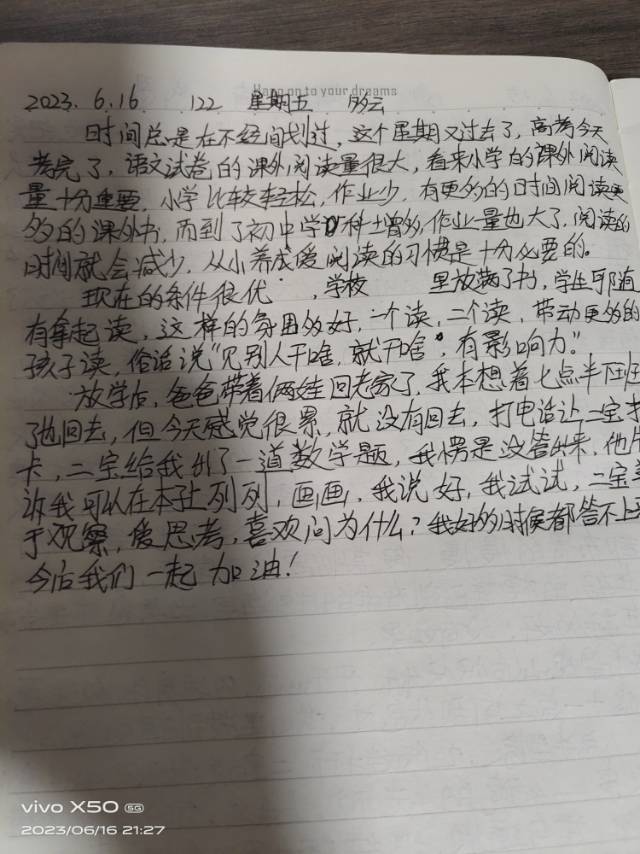 Keep on to your dreams
2023. 6.16 122 星期五 多云
时间总是在不经间划过，这个星期又过去了，高考今天
考完了，语文试卷的课外阅读量很大，看来小学的课外阅读
量十分重要，小学比较轻松，作业少，有更多的时间阅读更
多的课外书，而到了初中学科增多，作业量也大了，阅读的
时间就会减少，从小养成爱阅读的习惯是十分必要的。
现在的条件很优，学校 里放满了书，学生可随
有拿起读，这样的氛围多好，一个读，二个读，带动更多的
孩子读，俗话说“见别人干啥，就干啥，有影响力。”
放学后，爸爸带着俩娃回老家了，我本想着七点半下班
了也回去，但今天感觉很累，就没有回去，打电话让二宝打
卡，二宝给我出了一道数学题，我愣是没答出来，他
诉我可以在本子上列列，画画，我说好，我试试，二宝
于观察，爱思考，喜欢问为什么？我好多时候都答不上
今后我们一起加油！
vivo X50 5G
2023/06/16 21:27